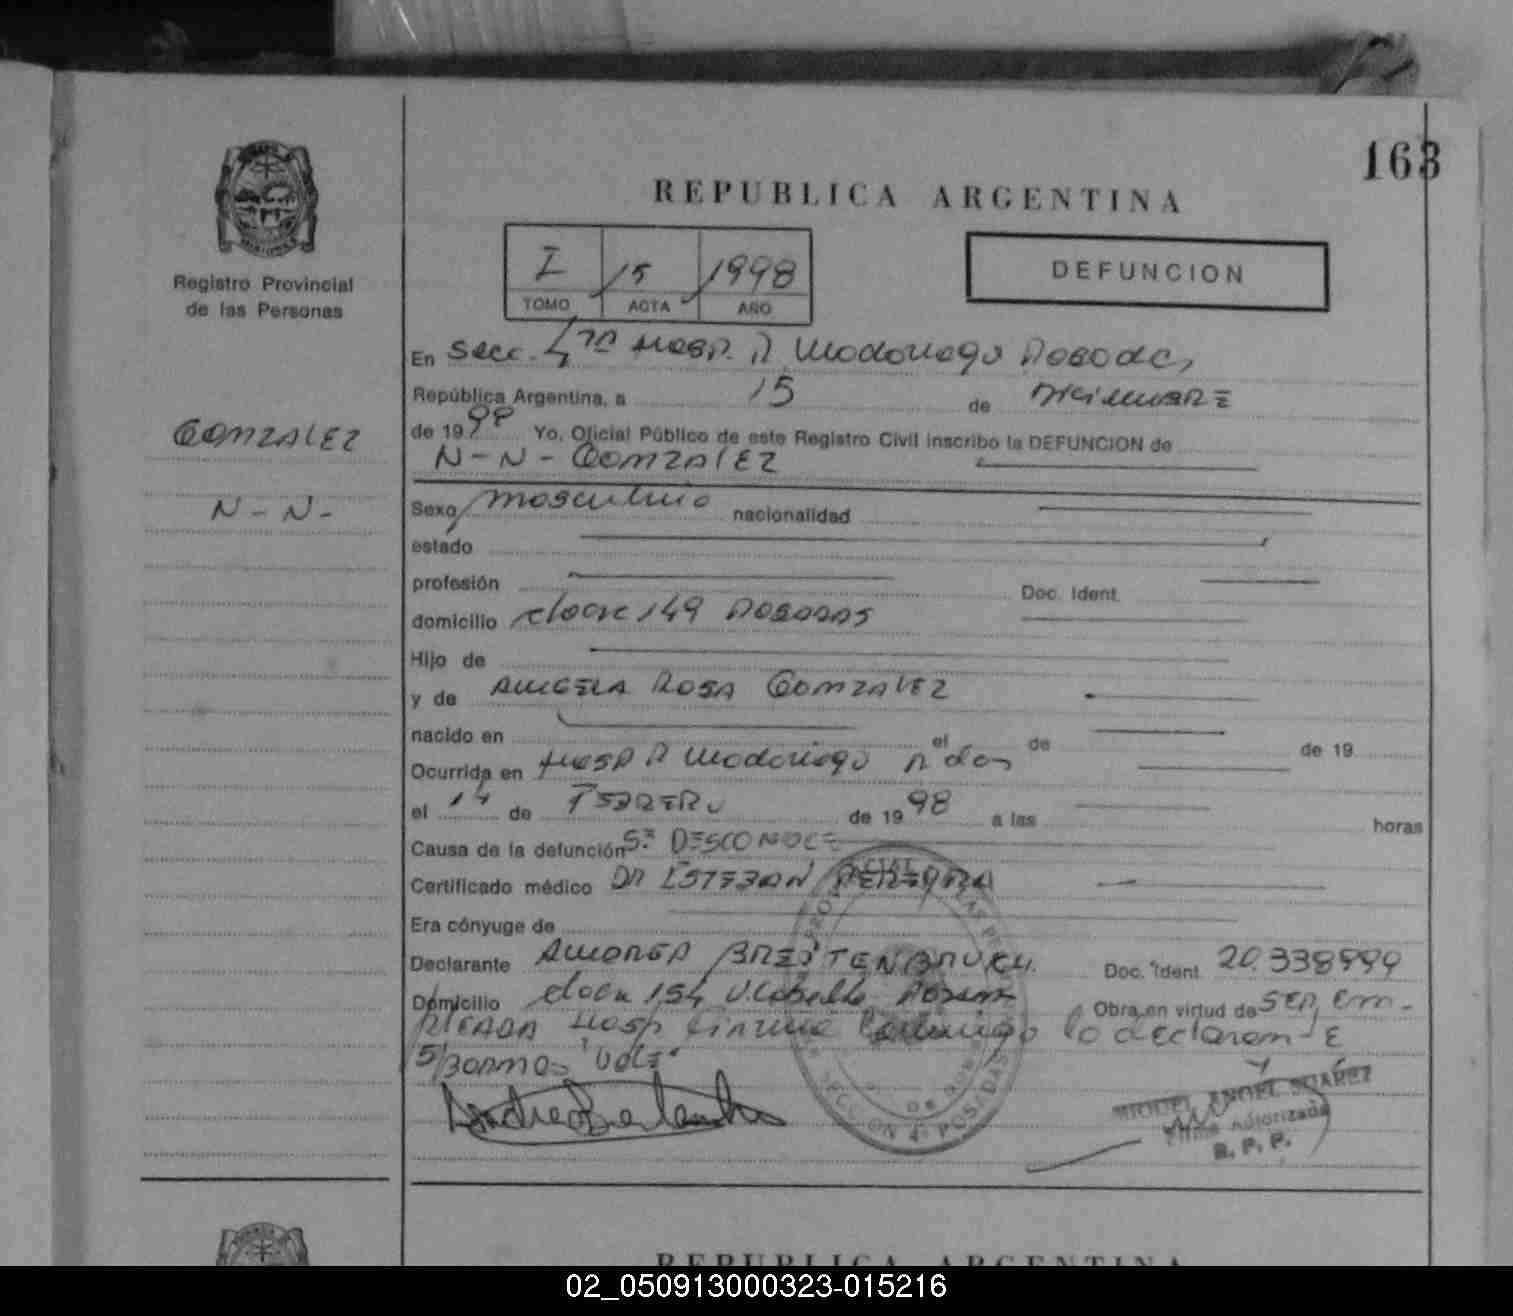 163
REPUBLICA ARGENTINA
Registro Provincial
de las Personas
I 15 1998
TOMO ACTA AÑO
DEFUNCION
En Secc. 4ta Hosp. R Madariaga Posadas,
República Argentina, a 15 de
de 1998 Yo, Oficial Público de este Registro Civil inscribo la DEFUNCION de
GONZALEZ
N-N-GONZALEZ
N-N-
Sexo masculino nacionalidad
estado
profesión Doc. Ident.
domicilio 149 POSADAS
Hijo de
y de ANGELA ROSA GONZALEZ
nacido en el de de 19
Ocurrida en Hosp R Madariaga Pdas
el 14 de FEBRERO de 1998 a las horas
Causa de la defunción SE DESCONOCE
Certificado médico DR ESTEBAN PEREYRA
Era cónyuge de
Declarante ANDREA BREITENBRUCH Doc. Ident 20.338999
Domicilio 154 V. Cabello Obra en virtud de SER EM-
PLEADA Hosp lo declaran E
"VALE"
SECCION 4ª POSADAS
MIGUEL ANGEL SUAREZ
Firma Autorizada
R. P. P.
REPUBLICA ARGENTINA
02_050913000323-015216